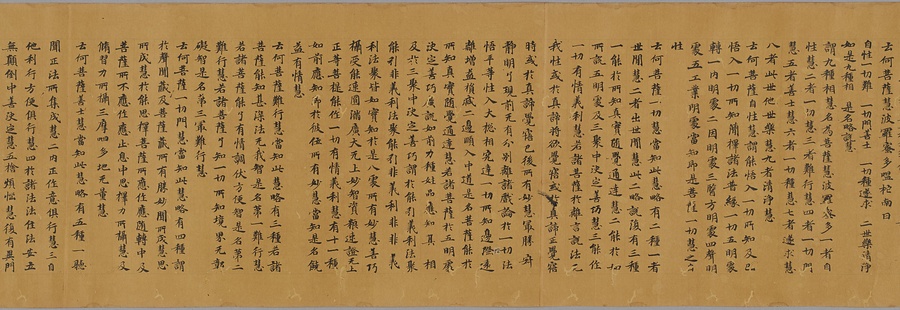 云何菩薩慧波羅蜜多嗢柁南曰
自性一切難 一切門善士 一切種遂求 二世樂清淨
如是九種相 是名略說慧
謂九種相慧名為菩薩慧波羅蜜多一者自
性慧二者一切慧三者難行慧四者一切門
慧五者善士慧六者一切種慧七者遂求慧
八者此世他世樂慧九者清淨慧
云何菩薩自性慧謂能悟入一切所知及已
悟入一切所知簡擇諸法普緣一切五明處
轉一內明處二因明處三醫方明處四聲明
處五工業明處當知即是菩薩一切慧之自
性
云何菩薩一切慧當知此慧略有二種一者
世間慧二者出世間慧此二略說復有三種
一能於所知真實隨覺通達慧二能於如
所說五明處及三聚中決定善巧慧三能作
一切有情義利慧若諸菩薩於離言說法无
我性或於真諦將欲覺寤或於真諦正覺寤
時或於真諦覺寤已後所有妙慧最勝寂
靜明了現前无有分別離諸戲論於一切法
悟平等性入大總相究達一切所知邊際遠
離增益損減二邊順入中道是名菩薩能於
所知真實隨覺通達慧若諸菩薩於五明處
決定善巧廣說如前力種姓品應知其相
及於三聚中決定善巧謂於能引義利法聚
能引非義利法聚能引非義利非非義
利法聚皆如實知於是八處所有妙慧善巧
攝受能速圓滿廣大无上妙智資糧速證无上
正等菩提能作一切有情義利慧有十一種
如前應知即於彼位所有妙慧當知是名饒
益有情慧
云何菩薩難行慧當知此慧略有三種若諸
菩薩能知甚深法无我智是名第一難行慧
若諸菩薩能了有情調伏方便智是名第二
難行慧若諸菩薩了知一切所知境界无鄣
礙智是名第三最難行慧
云何菩薩一切門慧當知此慧略有四種謂
於聲聞藏及菩薩藏所有勝妙聞所成慧思
所成慧於能思擇菩薩所應作應隨轉中及
菩薩所不應作應止息中思擇力所攝慧及
脩習力所攝三摩呬多地无量慧
云何菩薩善士慧當知此慧略有五種一聽
聞正法所集成慧二內正作意俱行慧三自
他利行方便俱行慧四於諸法法住法安立
無顛倒中善決定慧五捨煩惱慧復有異門